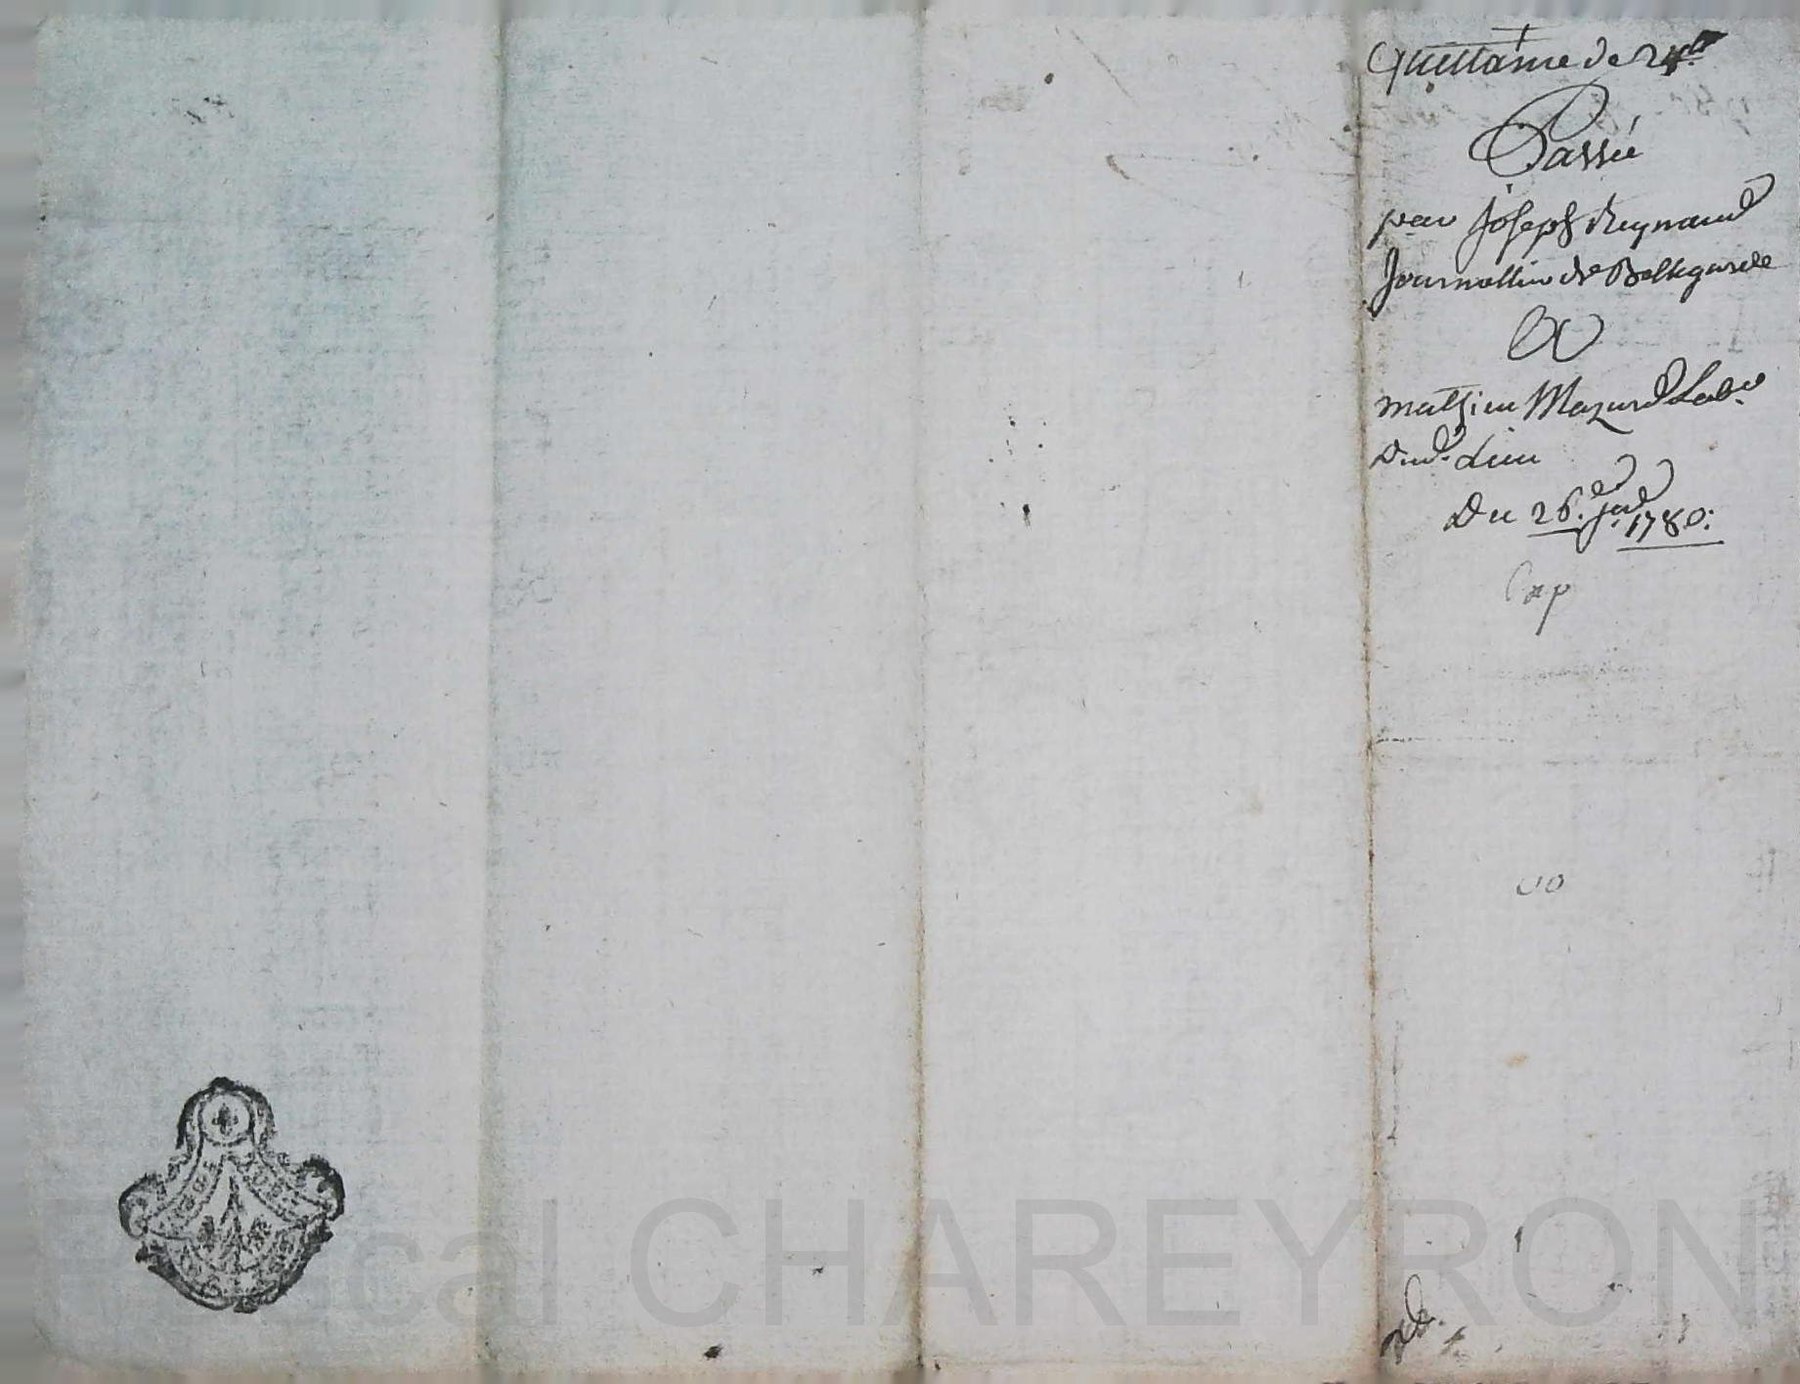 Quittance de 24lt
Passée
par Joseph Reynaud
Journallier de Bellegarde
a
mathieu Mazard Lab.r
Dud. Lieu
Du 26e. jer. 1780.
Exp
Pascal CHAREYRON